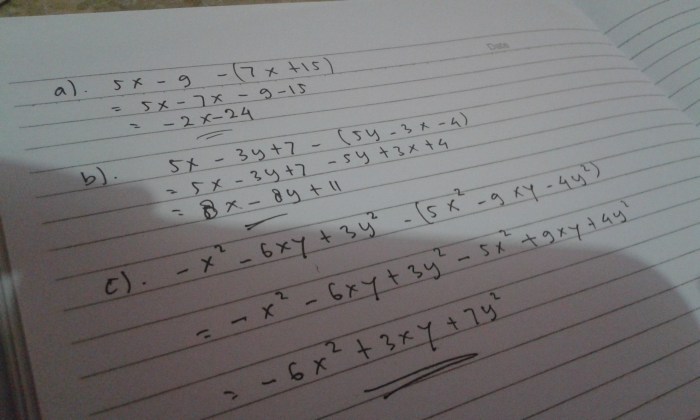 Date
a). 5x - 9 - (7x + 15)
= 5x - 7x - 9 - 15
= -2x - 24
b). 5x - 3y + 7 - (5y - 3x - 4)
= 5x - 3y + 7 - 5y + 3x + 4
= 8x - 8y + 11
c). -x² - 6xy + 3y² - (5x² - 9xy - 4y²)
= -x² - 6xy + 3y² - 5x² + 9xy + 4y²
= -6x² + 3xy + 7y²